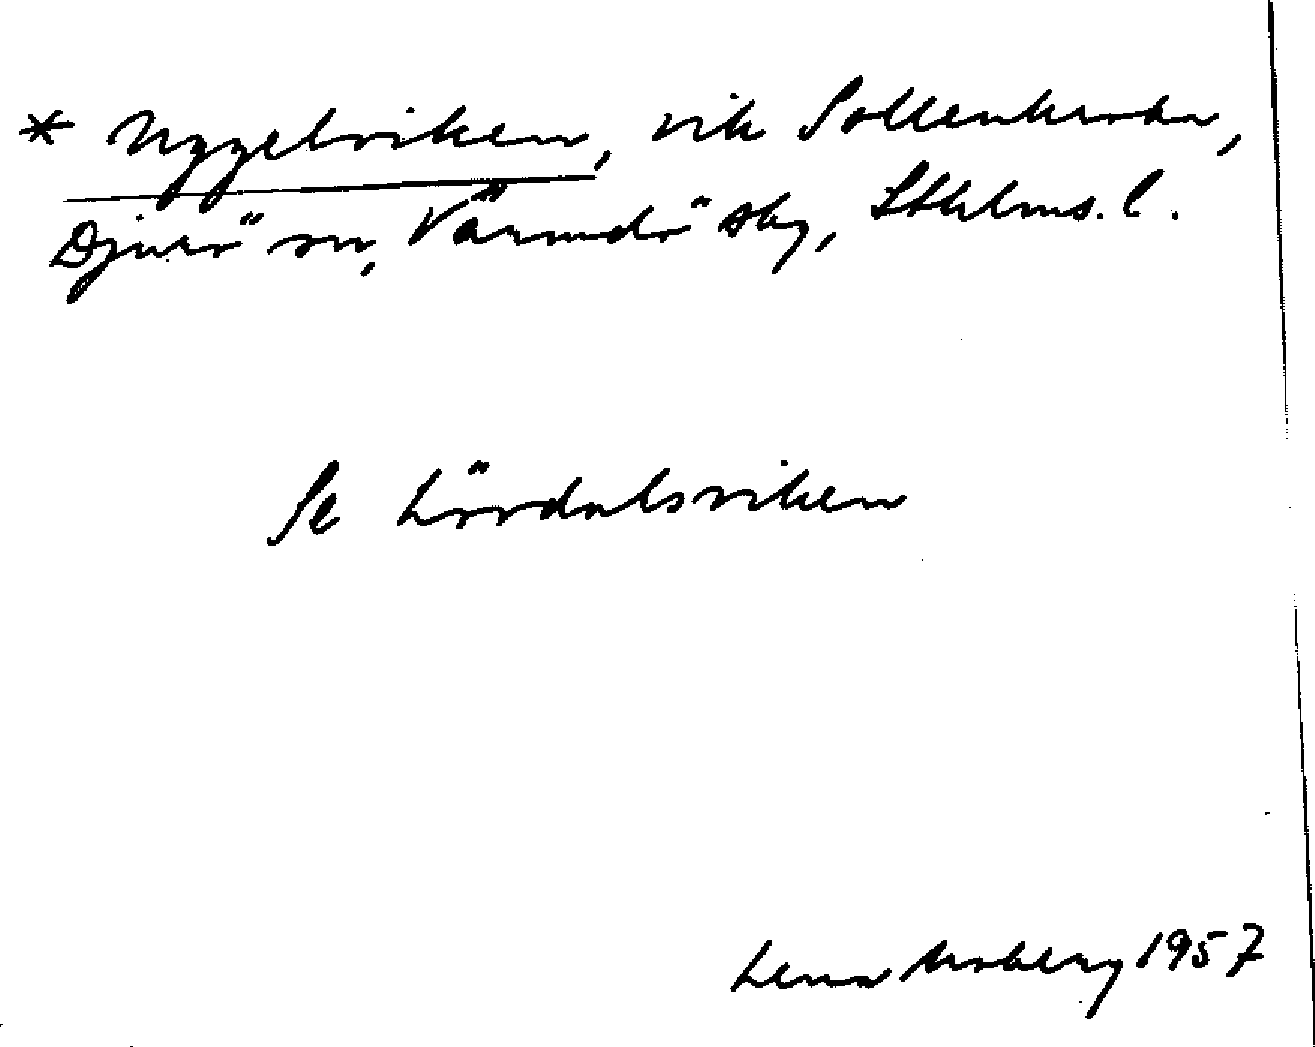 * Nyggelviken, vik Sollenkroka,
Djurö sn, Värmdö skg, Sthlms. l.
Se Lövdalsviken
Lena Moberg 1957